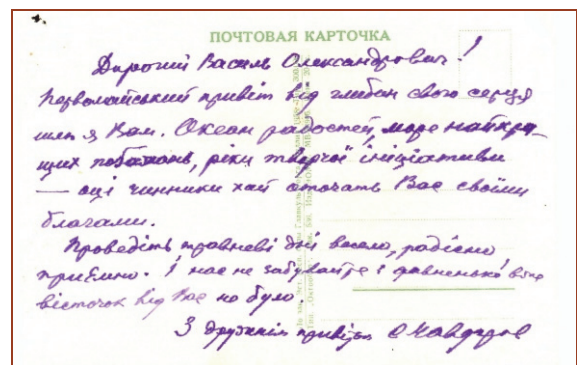 ПОЧТОВАЯ КАРТОЧКА
Дорогий Василь Олександрович!
Первомайський привіт від глибин свого серця
шлю я Вам. Океан радостей, море найкра-
щих побажань, ріки творчої ініціативи
— оці чинники хай оточать Вас своїми
благами.
Проведіть травневі дні весело, радісно,
приємно. І нас не забувайте і давненько вже
вісточок від Вас не було.
З дружнім привітом